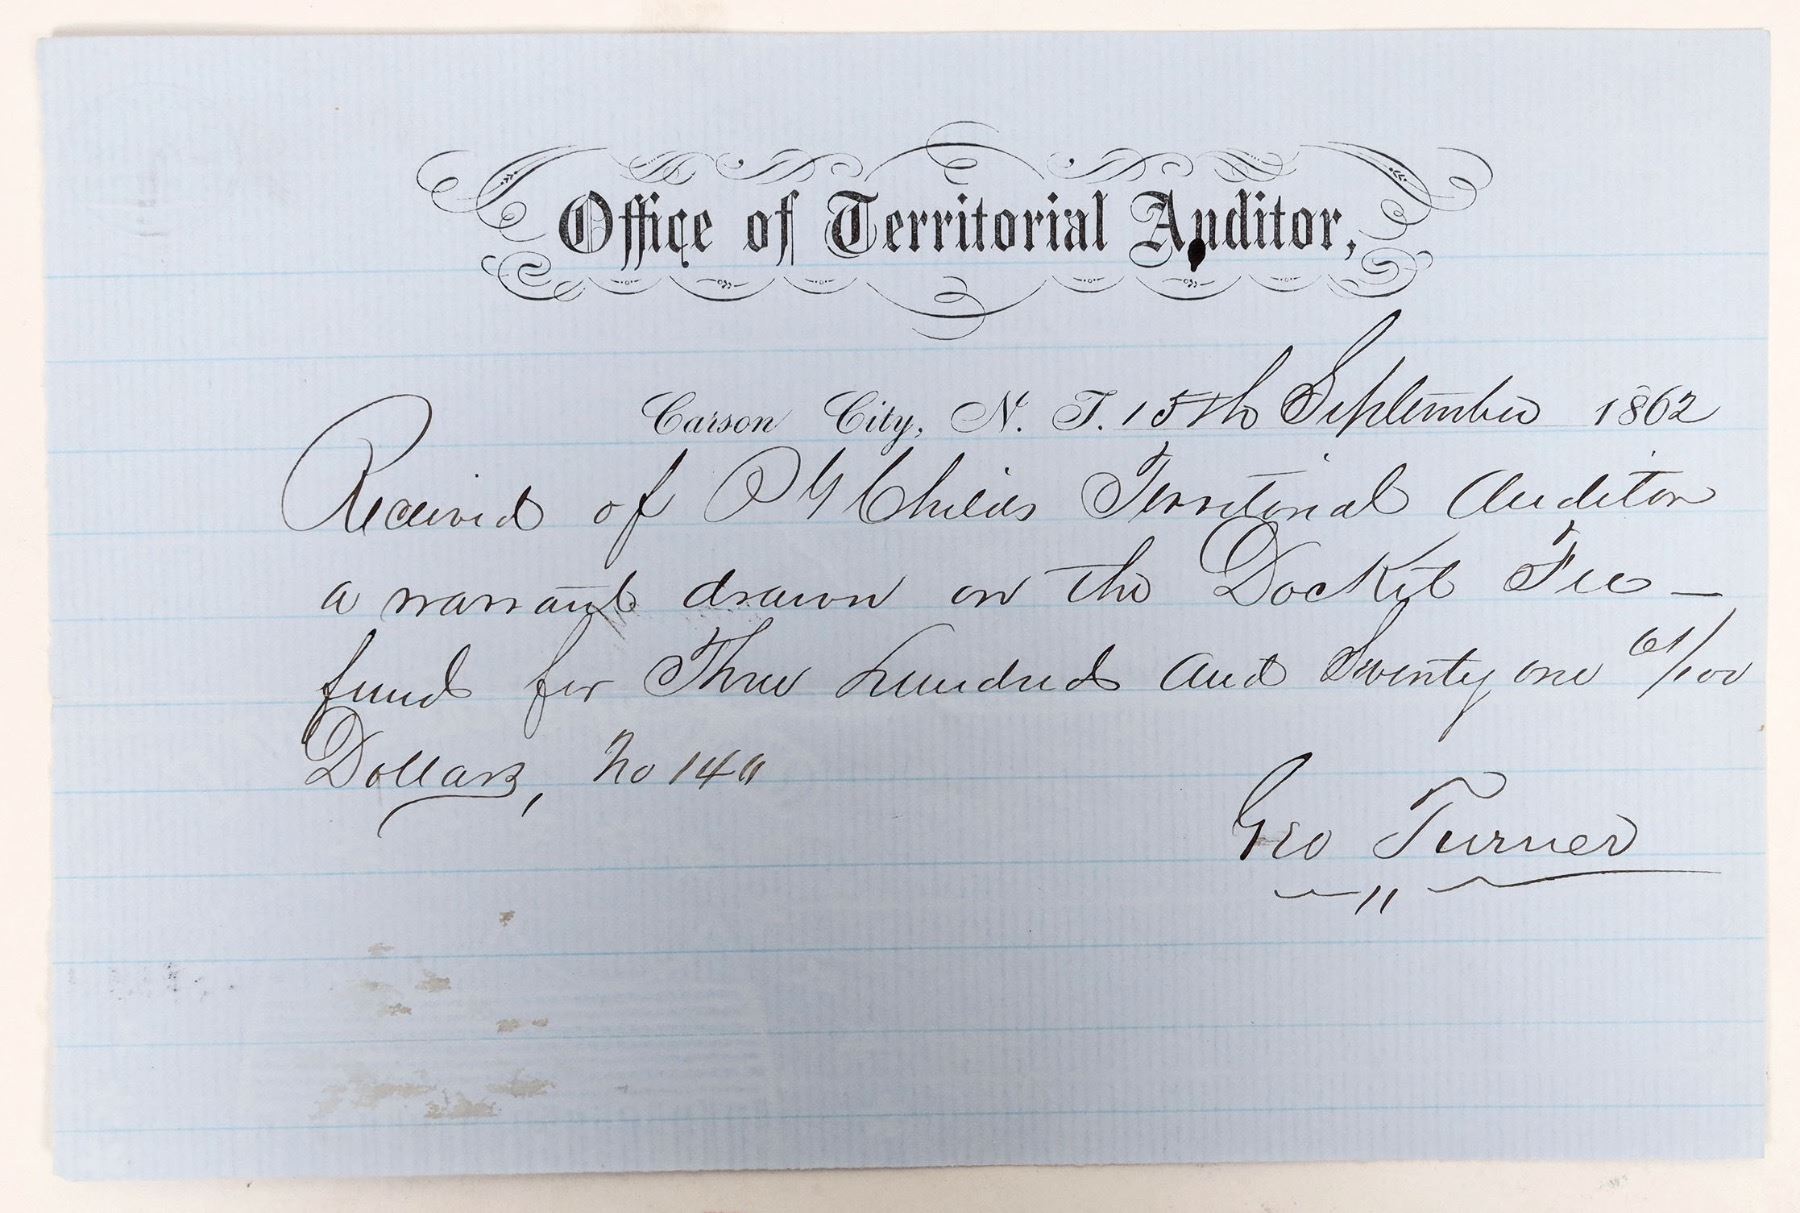 Office of Territorial Auditor,
Carson City, N. T. 15th September 1862
Received of P G Childs Territorial Auditor
a warrant drawn on the Docket Fee –
fund for Three hundred and Twenty one 61/100
Dollars, No 14
Geo Turner